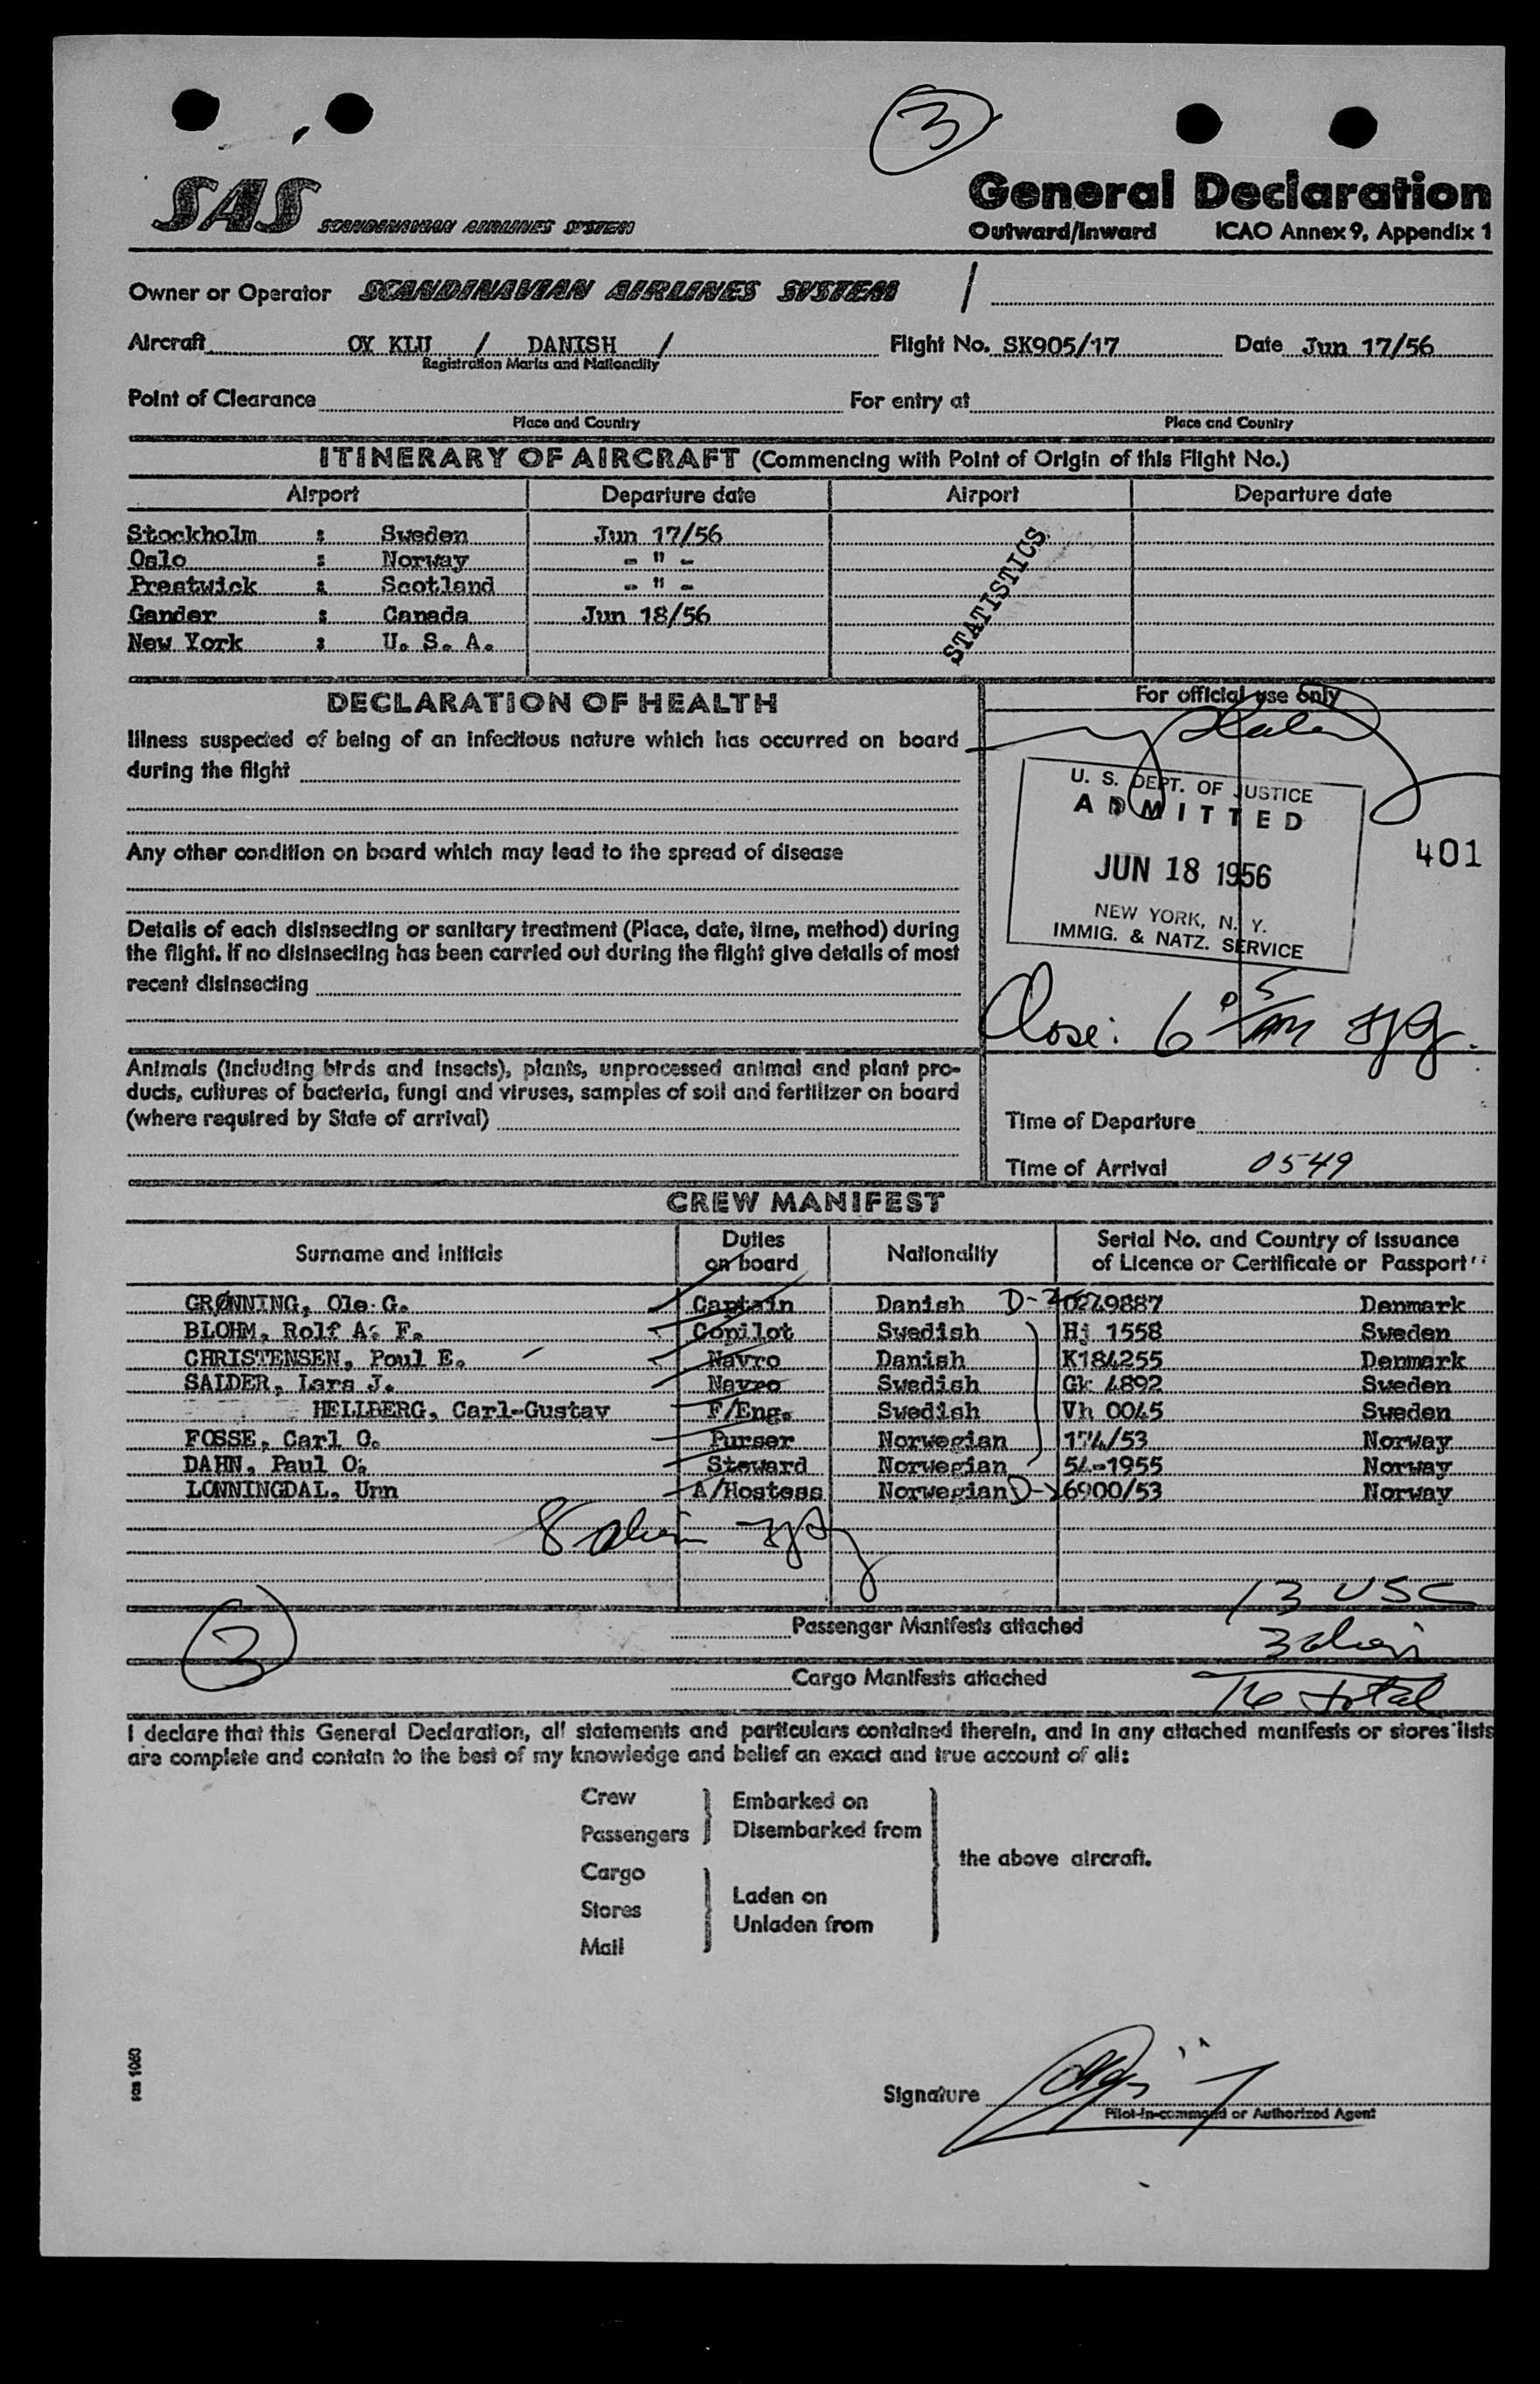 3
SAS SCANDINAVIAN AIRLINES SYSTEM
General Declaration
Outward/Inward ICAO Annex 9, Appendix 1
Owner or Operator SCANDINAVIAN AIRLINES SYSTEM /
Aircraft OY KLU / DANISH / Flight No. SK905/17 Date Jun 17/56
Registration Marks and Nationality
Point of Clearance For entry at
Place and Country Place and Country
ITINERARY OF AIRCRAFT (Commencing with Point of Origin of this Flight No.)
Airport Departure date Airport Departure date
Stockholm : Sweden Jun 17/56
Oslo : Norway - " -
Prestwick : Scotland - " -
Gander : Canada Jun 18/56
New York : U. S. A.
STATISTICS
DECLARATION OF HEALTH
Illness suspected of being of an infectious nature which has occurred on board
during the flight
Any other condition on board which may lead to the spread of disease
Details of each disinsecting or sanitary treatment (Place, date, time, method) during
the flight. If no disinsecting has been carried out during the flight give details of most
recent disinsecting
Animals (including birds and insects), plants, unprocessed animal and plant pro-
ducts, cultures of bacteria, fungi and viruses, samples of soil and fertilizer on board
(where required by State of arrival)
For official use only
U. S. DEPT. OF JUSTICE
ADMITTED
JUN 18 1956
NEW YORK, N. Y.
IMMIG. & NATZ. SERVICE
401
Close: 6 05 AM
Time of Departure
Time of Arrival 0549
CREW MANIFEST
Surname and initials Duties on board Nationality Serial No. and Country of issuance of Licence or Certificate or Passport
GRØNNING, Ole G. Captain Danish 0249887 Denmark
BLOHM, Rolf A. F. Copilot Swedish Hj 1558 Sweden
CHRISTENSEN, Poul E. Navro Danish K184255 Denmark
SAIDER, Lars J. Navro Swedish Gk 4892 Sweden
HELLBERG, Carl-Gustav F/Eng. Swedish Vh 0045 Sweden
FOSSE, Carl O. Purser Norwegian 174/53 Norway
DAHN, Paul O. Steward Norwegian 54-1955 Norway
LONNINGDAL, Unn A/Hostess Norwegian D- 6900/53 Norway
8 alien
2
Passenger Manifests attached
13 USC
3 alien
Cargo Manifests attached
16 total
I declare that this General Declaration, all statements and particulars contained therein, and in any attached manifests or stores lists
are complete and contain to the best of my knowledge and belief an exact and true account of all:
Crew
Passengers
Cargo
Stores
Mail
Embarked on
Disembarked from
Laden on
Unladen from
the above aircraft.
sas 1060
Signature
Pilot-in-command or Authorized Agent